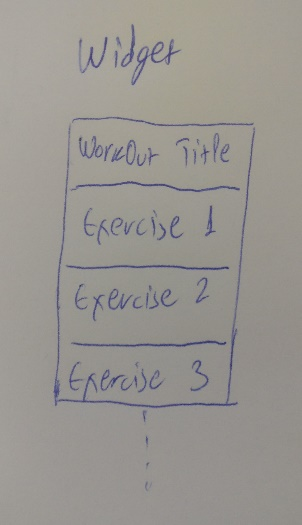 Widget
WorkOut Title
Exercise 1
Exercise 2
Exercise 3